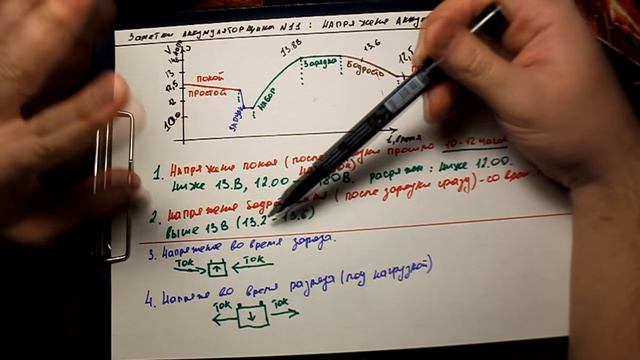 Заметки Аккумуляторщика №11: Напряжение Аккум
V
13.8В
13.6
12,5
13
12,5
12
покой
простой
запуск
набор
зарядка
Бодрость
t, время
1. Напряжение покоя (после зарядки прошло 10-12 часов
ниже 13.В, 12.00 разряжен: ниже 12.00.
2. напряжение бодрости (после зарядки сразу) - со врем
выше 13В (13.2 - 13.6)
3. Напряжение во время заряда.
ток ток
4. Напряже во время разряда (под нагрузкой)
ток ток